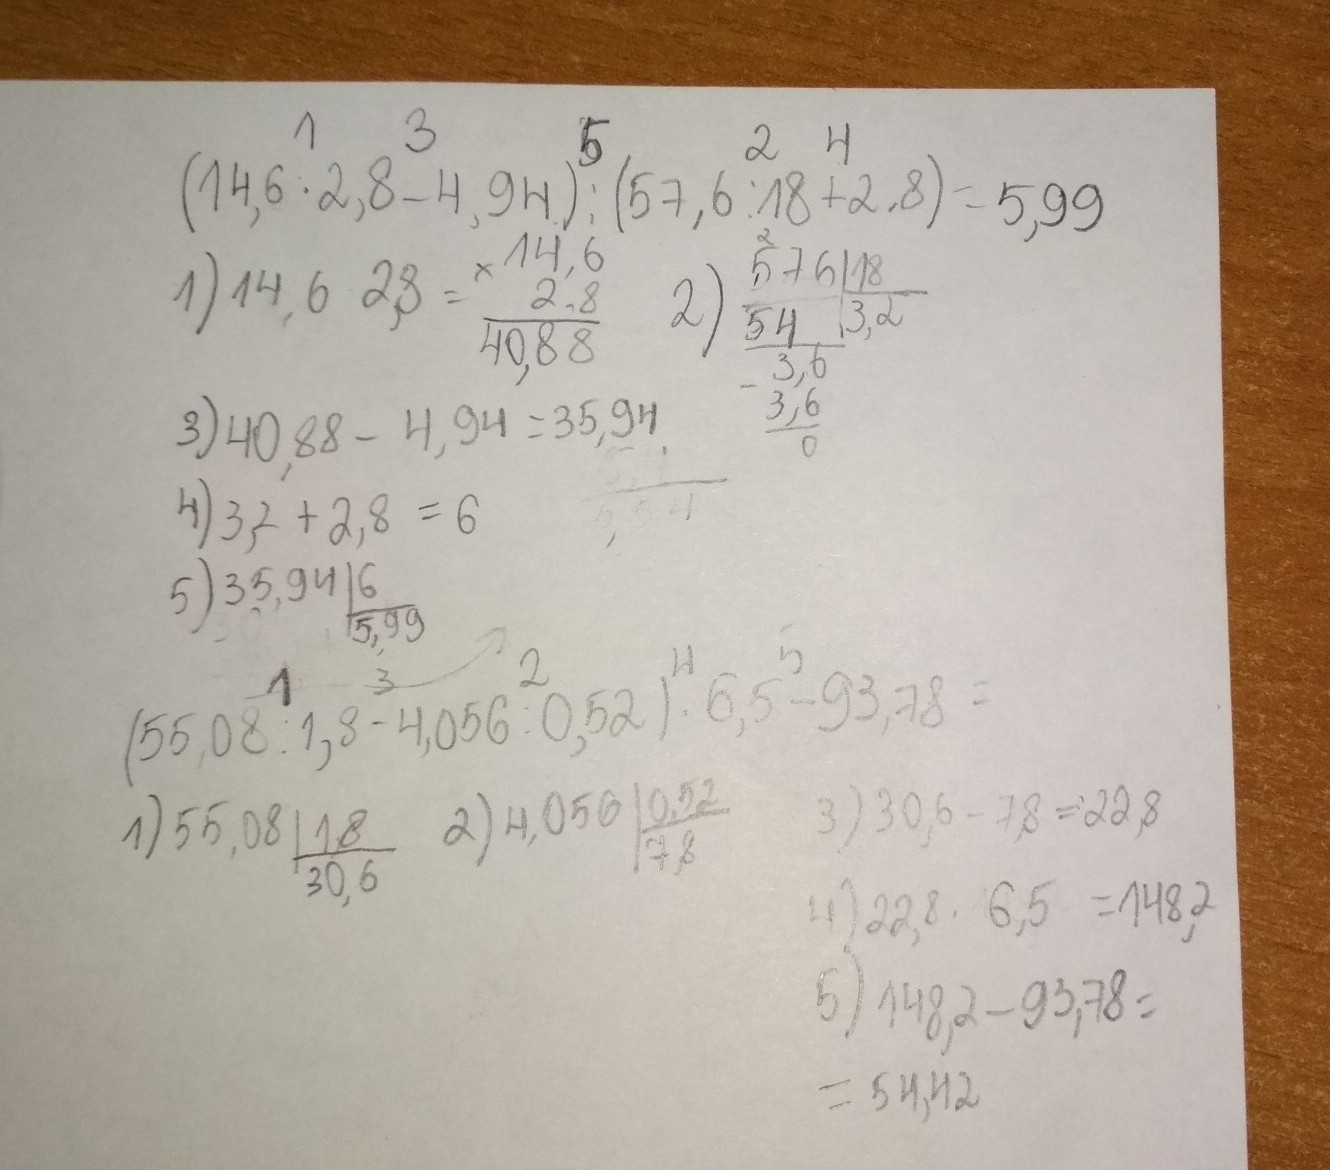 1 3 5 2 4
(14,6 · 2,8 – 4,94) : (57,6 : 18 + 2,8) = 5,99
1) 14,6 2,8 =
× 14,6
2,8
40,88
2) 576 | 18
54 3,2
- 3,6
3,6
0
3) 40,88 – 4,94 = 35,94
4) 3,2 + 2,8 = 6
5) 35,94 | 6
5,99
1 3 2 4 5
(55,08 : 1,8 - 4,056 : 0,52) · 6,5 – 93,78 =
1) 55,08 | 1,8
30,6
2) 4,056 | 0,52
7,8
3) 30,6 - 7,8 = 22,8
4) 22,8 · 6,5 = 148,2
5) 148,2 – 93,78 =
= 54,42